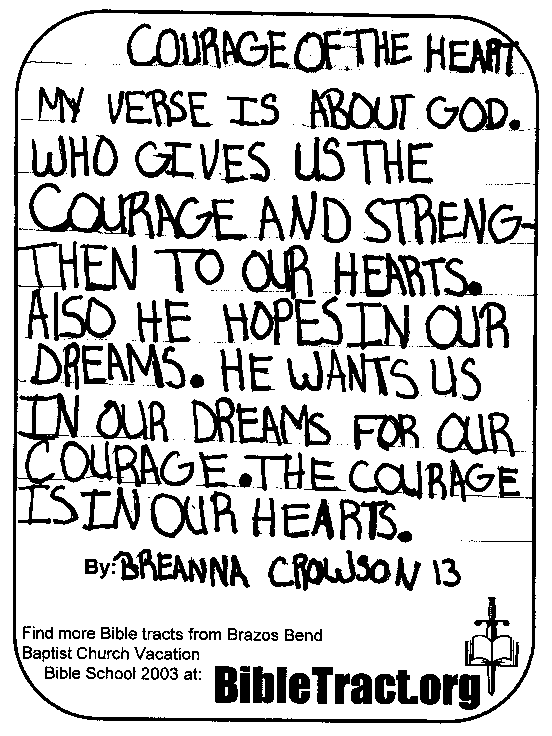 COURAGE OF THE HEART
MY VERSE IS ABOUT GOD.
WHO GIVES US THE
COURAGE AND STRENG-
THEN TO OUR HEARTS.
ALSO HE HOPES IN OUR
DREAMS. HE WANTS US
IN OUR DREAMS FOR OUR
COURAGE. THE COURAGE
IS IN OUR HEARTS.
By: BREANNA CROWSON 13
Find more Bible tracts from Brazos Bend
Baptist Church Vacation
Bible School 2003 at: BibleTract.org